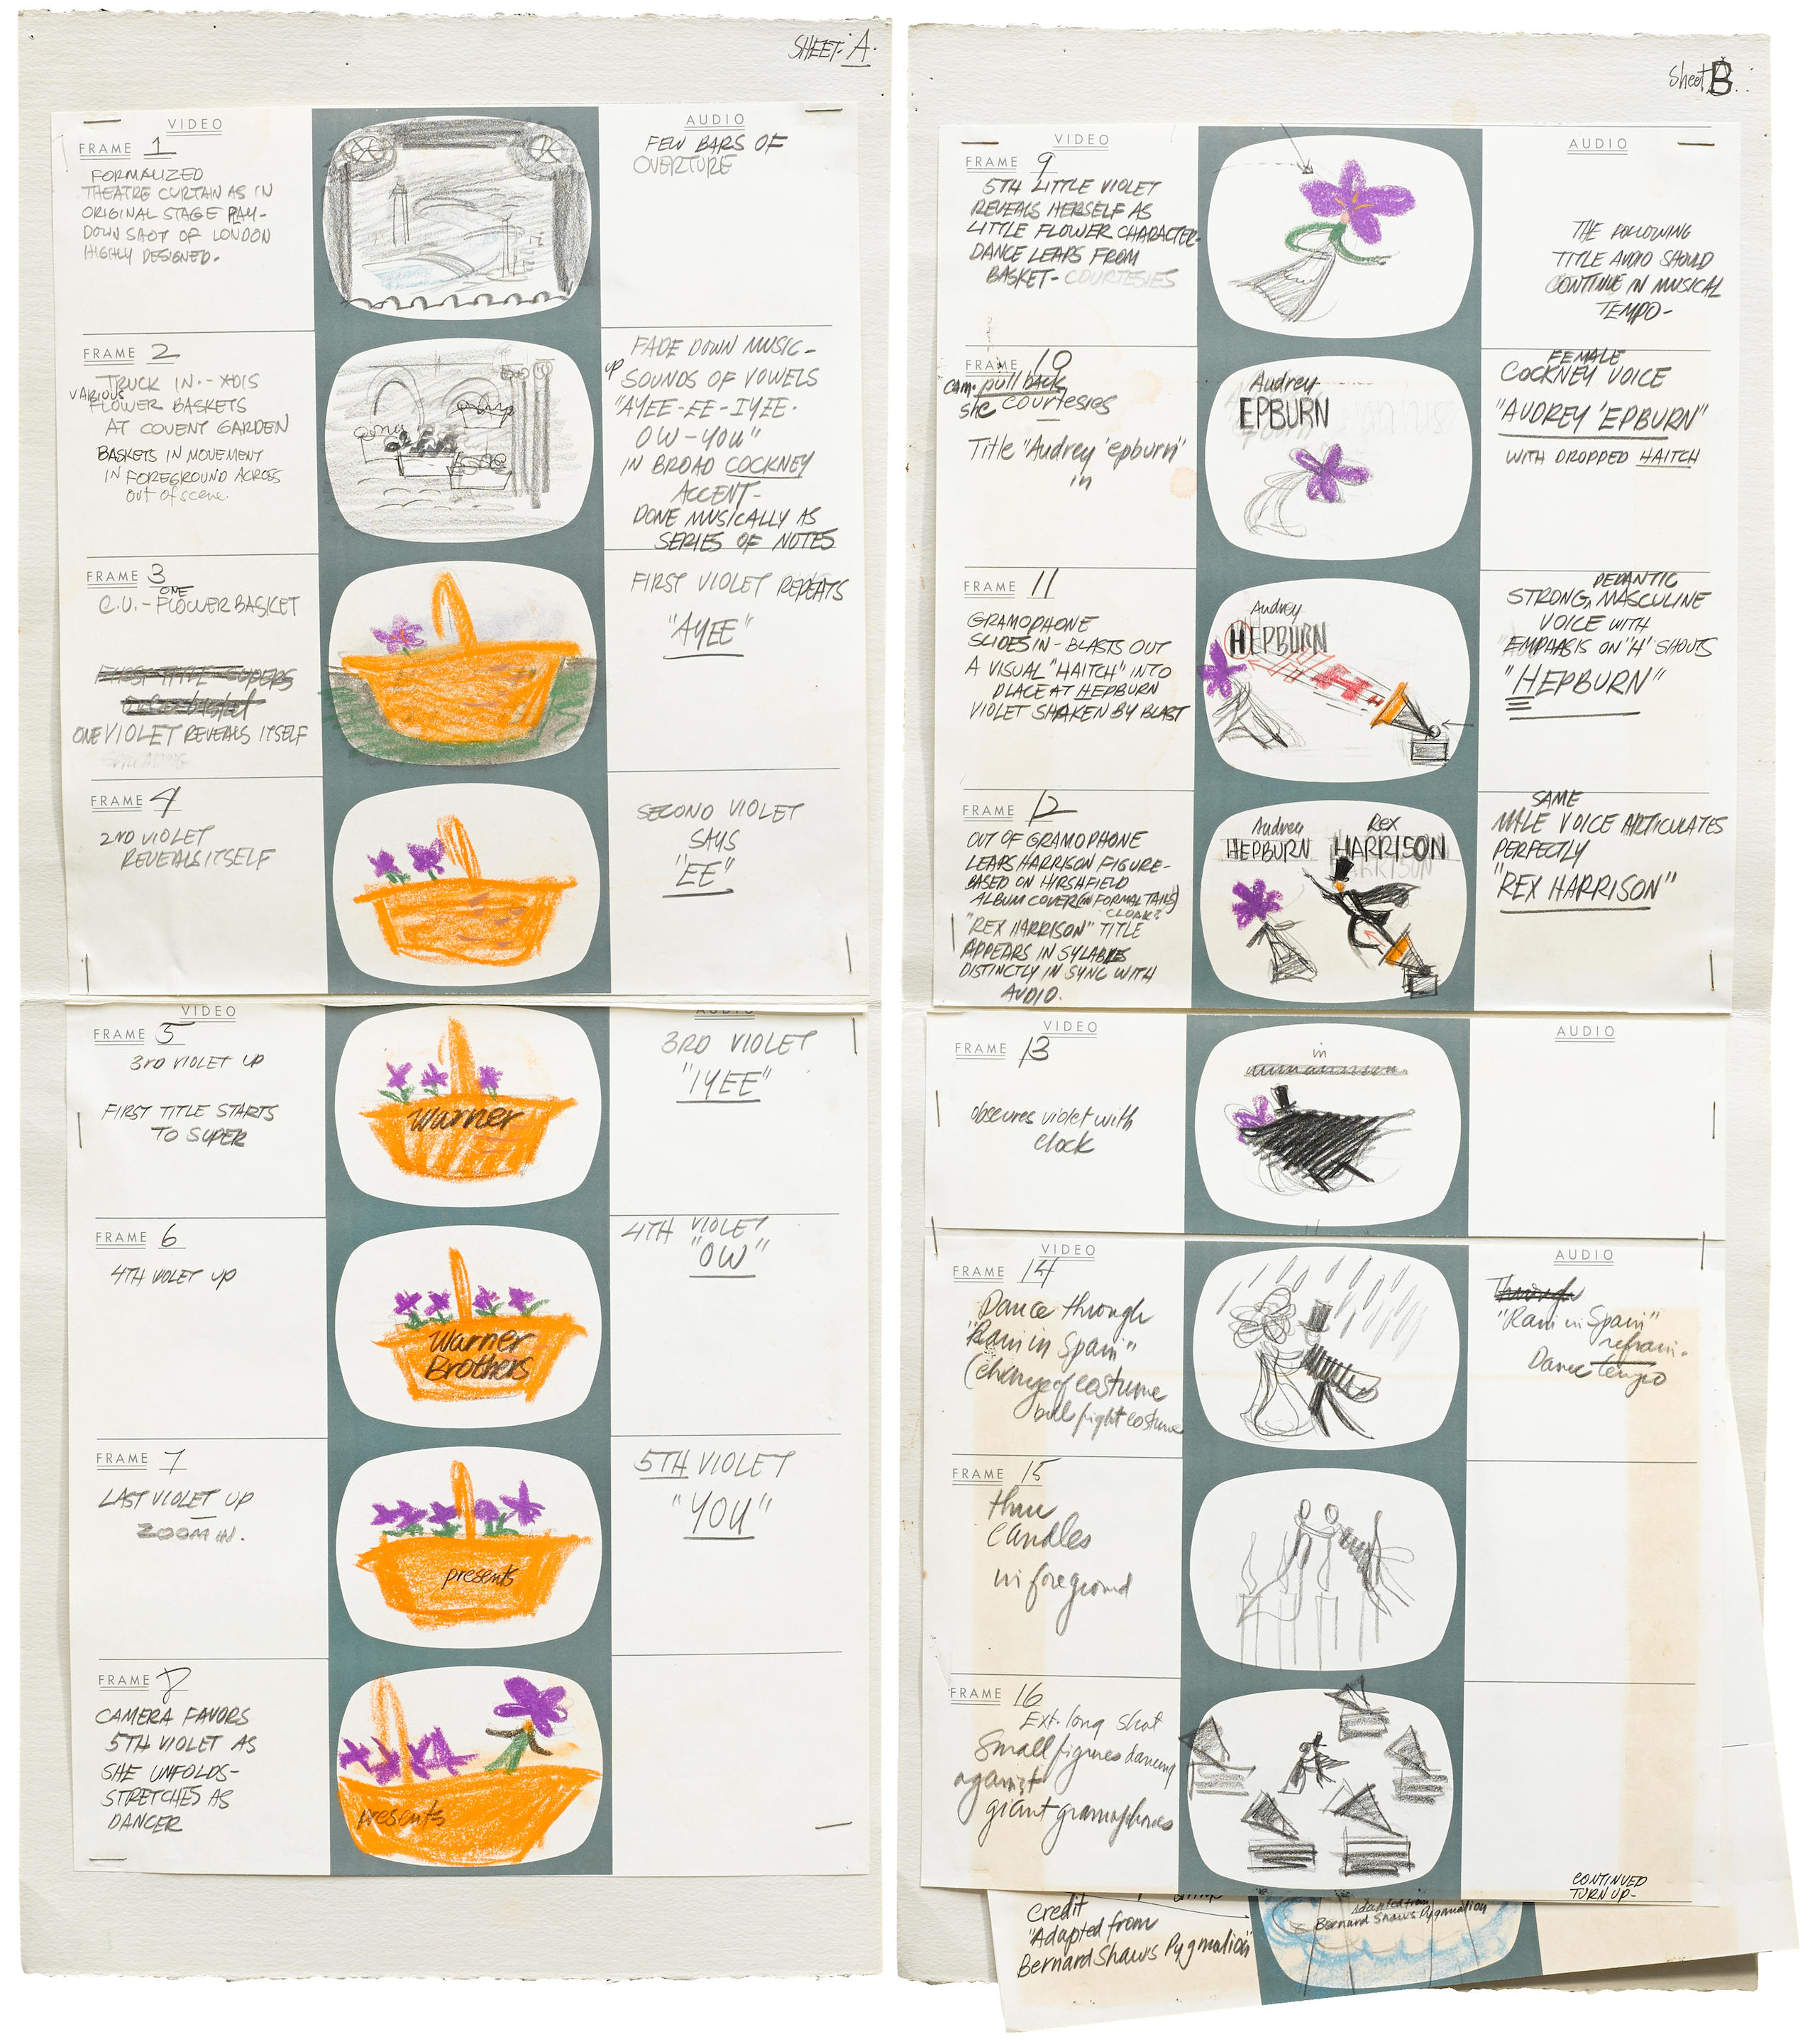 SHEET: A.
VIDEO
AUDIO
FRAME 1
FORMALIZED
THEATRE CURTAIN AS IN
ORIGINAL STAGE PLAY-
DOWN SHOT OF LONDON
HIGHLY DESIGNED.
FEW BARS OF
OVERTURE
FRAME 2
TRUCK IN.- XDIS
VARIOUS
FLOWER BASKETS
AT COVENT GARDEN
BASKETS IN MOVEMENT
IN FOREGROUND ACROSS
out of scene
FADE DOWN MUSIC-
UP SOUNDS OF VOWELS
"AYEE-EE-IYEE.
OW-YOU"
IN BROAD COCKNEY
ACCENT-
DONE MUSICALLY AS
SERIES OF NOTES
FRAME 3
ONE
C.U.-FLOWER BASKET
FIRST TITLE SUPERS
ONE VIOLET REVEALS ITSELF
FIRST VIOLET REPEATS
"AYEE"
FRAME 4
2ND VIOLET
REVEALS ITSELF
SECOND VIOLET
SAYS
"EE"
VIDEO
AUDIO
FRAME 5
3rd VIOLET UP
FIRST TITLE STARTS
TO SUPER
Warner
3RD VIOLET
"IYEE"
FRAME 6
4TH VIOLET UP
Warner
Brothers
4TH VIOLET
"OW"
FRAME 7
LAST VIOLET UP
ZOOM IN.
presents
5TH VIOLET
"YOU"
FRAME 8
CAMERA FAVORS
5TH VIOLET AS
SHE UNFOLDS-
STRETCHES AS
DANCER
presents
Sheet B
VIDEO
AUDIO
FRAME 9
5TH LITTLE VIOLET
REVEALS HERSELF AS
LITTLE FLOWER CHARACTER-
DANCE LEAPS FROM
BASKET- COURTESIES
THE FOLLOWING
TITLE AUDIO SHOULD
CONTINUE IN MUSICAL
TEMPO-
FRAME 10
cam. pull back
she courtesies
Title "Audrey 'epburn"
in
Audrey
EPBURN
FEMALE
COCKNEY VOICE
"AUDREY 'EPBURN"
WITH DROPPED HAITCH
FRAME 11
GRAMOPHONE
SLIDES IN- BLASTS OUT
A VISUAL "HAITCH" INTO
PLACE AT HEPBURN
VIOLET SHAKEN BY BLAST
Audrey
HEPBURN
PEDANTIC
STRONG, MASCULINE
VOICE WITH
EMPHASIS ON "H" SHOUTS
"HEPBURN"
FRAME 12
OUT OF GRAMOPHONE
LEAPS HARRISON FIGURE-
BASED ON HIRSHFIELD
ALBUM COVER (IN FORMAL TAILS)
CLOAK?
"REX HARRISON" TITLE
APPEARS IN SYLABLES
DISTINCTLY IN SYNC WITH
AUDIO.
Audrey
HEPBURN
Rex
HARRISON
SAME
MALE VOICE ARTICULATES
PERFECTLY
"REX HARRISON"
VIDEO
AUDIO
FRAME 13
obscures violet with
cloak
in
VIDEO
AUDIO
FRAME 14
Dance through
"Rain in Spain"
(change of costume
bull fight costume
Through
"Rain in Spain"
refrain-
Dance tempo
FRAME 15
thru
candles
in foreground
FRAME 16
Ext. long shot
Small figures dancing
against
giant gramophones
CONTINUED
TURN UP-
Credit
"Adapted from
Bernard Shaws Pygmalion"
Adapted from
Bernard Shaws Pygmalion